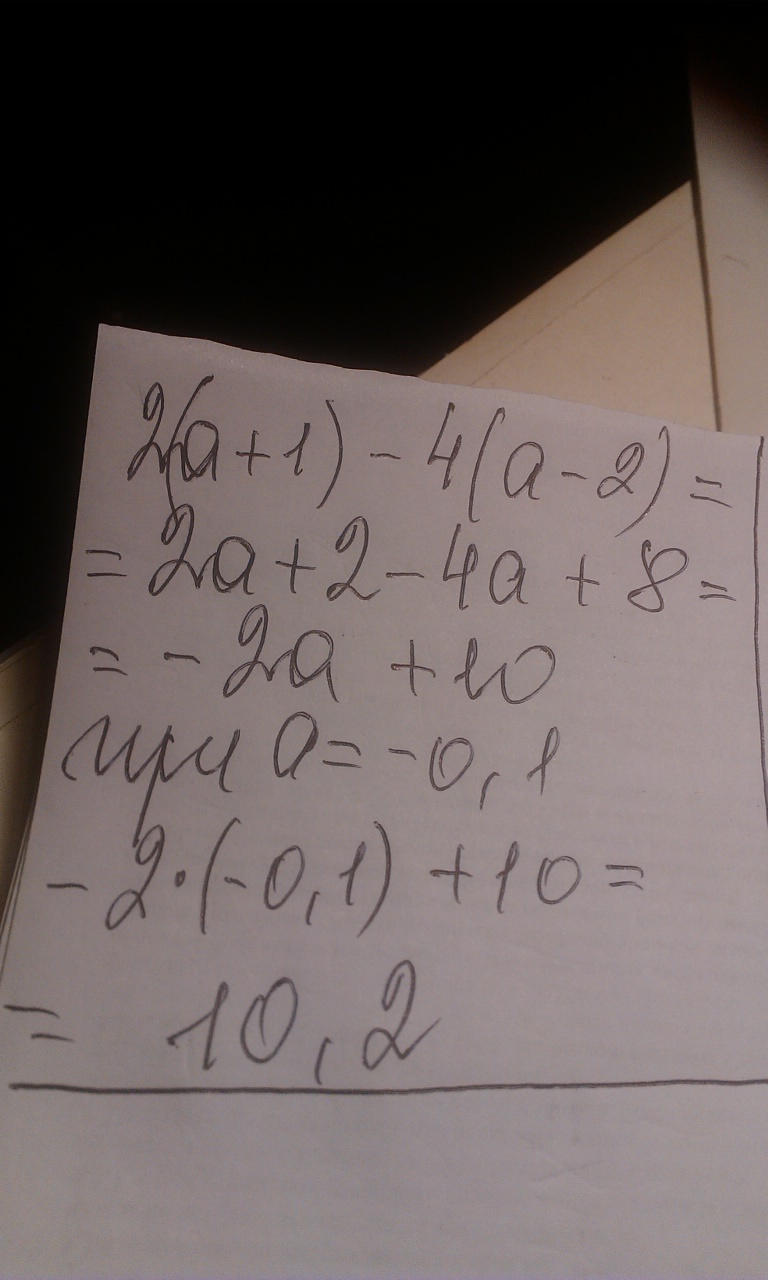 2(a+1) - 4(a-2) =
= 2a+2-4a + 8 =
= - 2a + 10
при a = -0,1
- 2·(-0,1) + 10 =
= 10,2